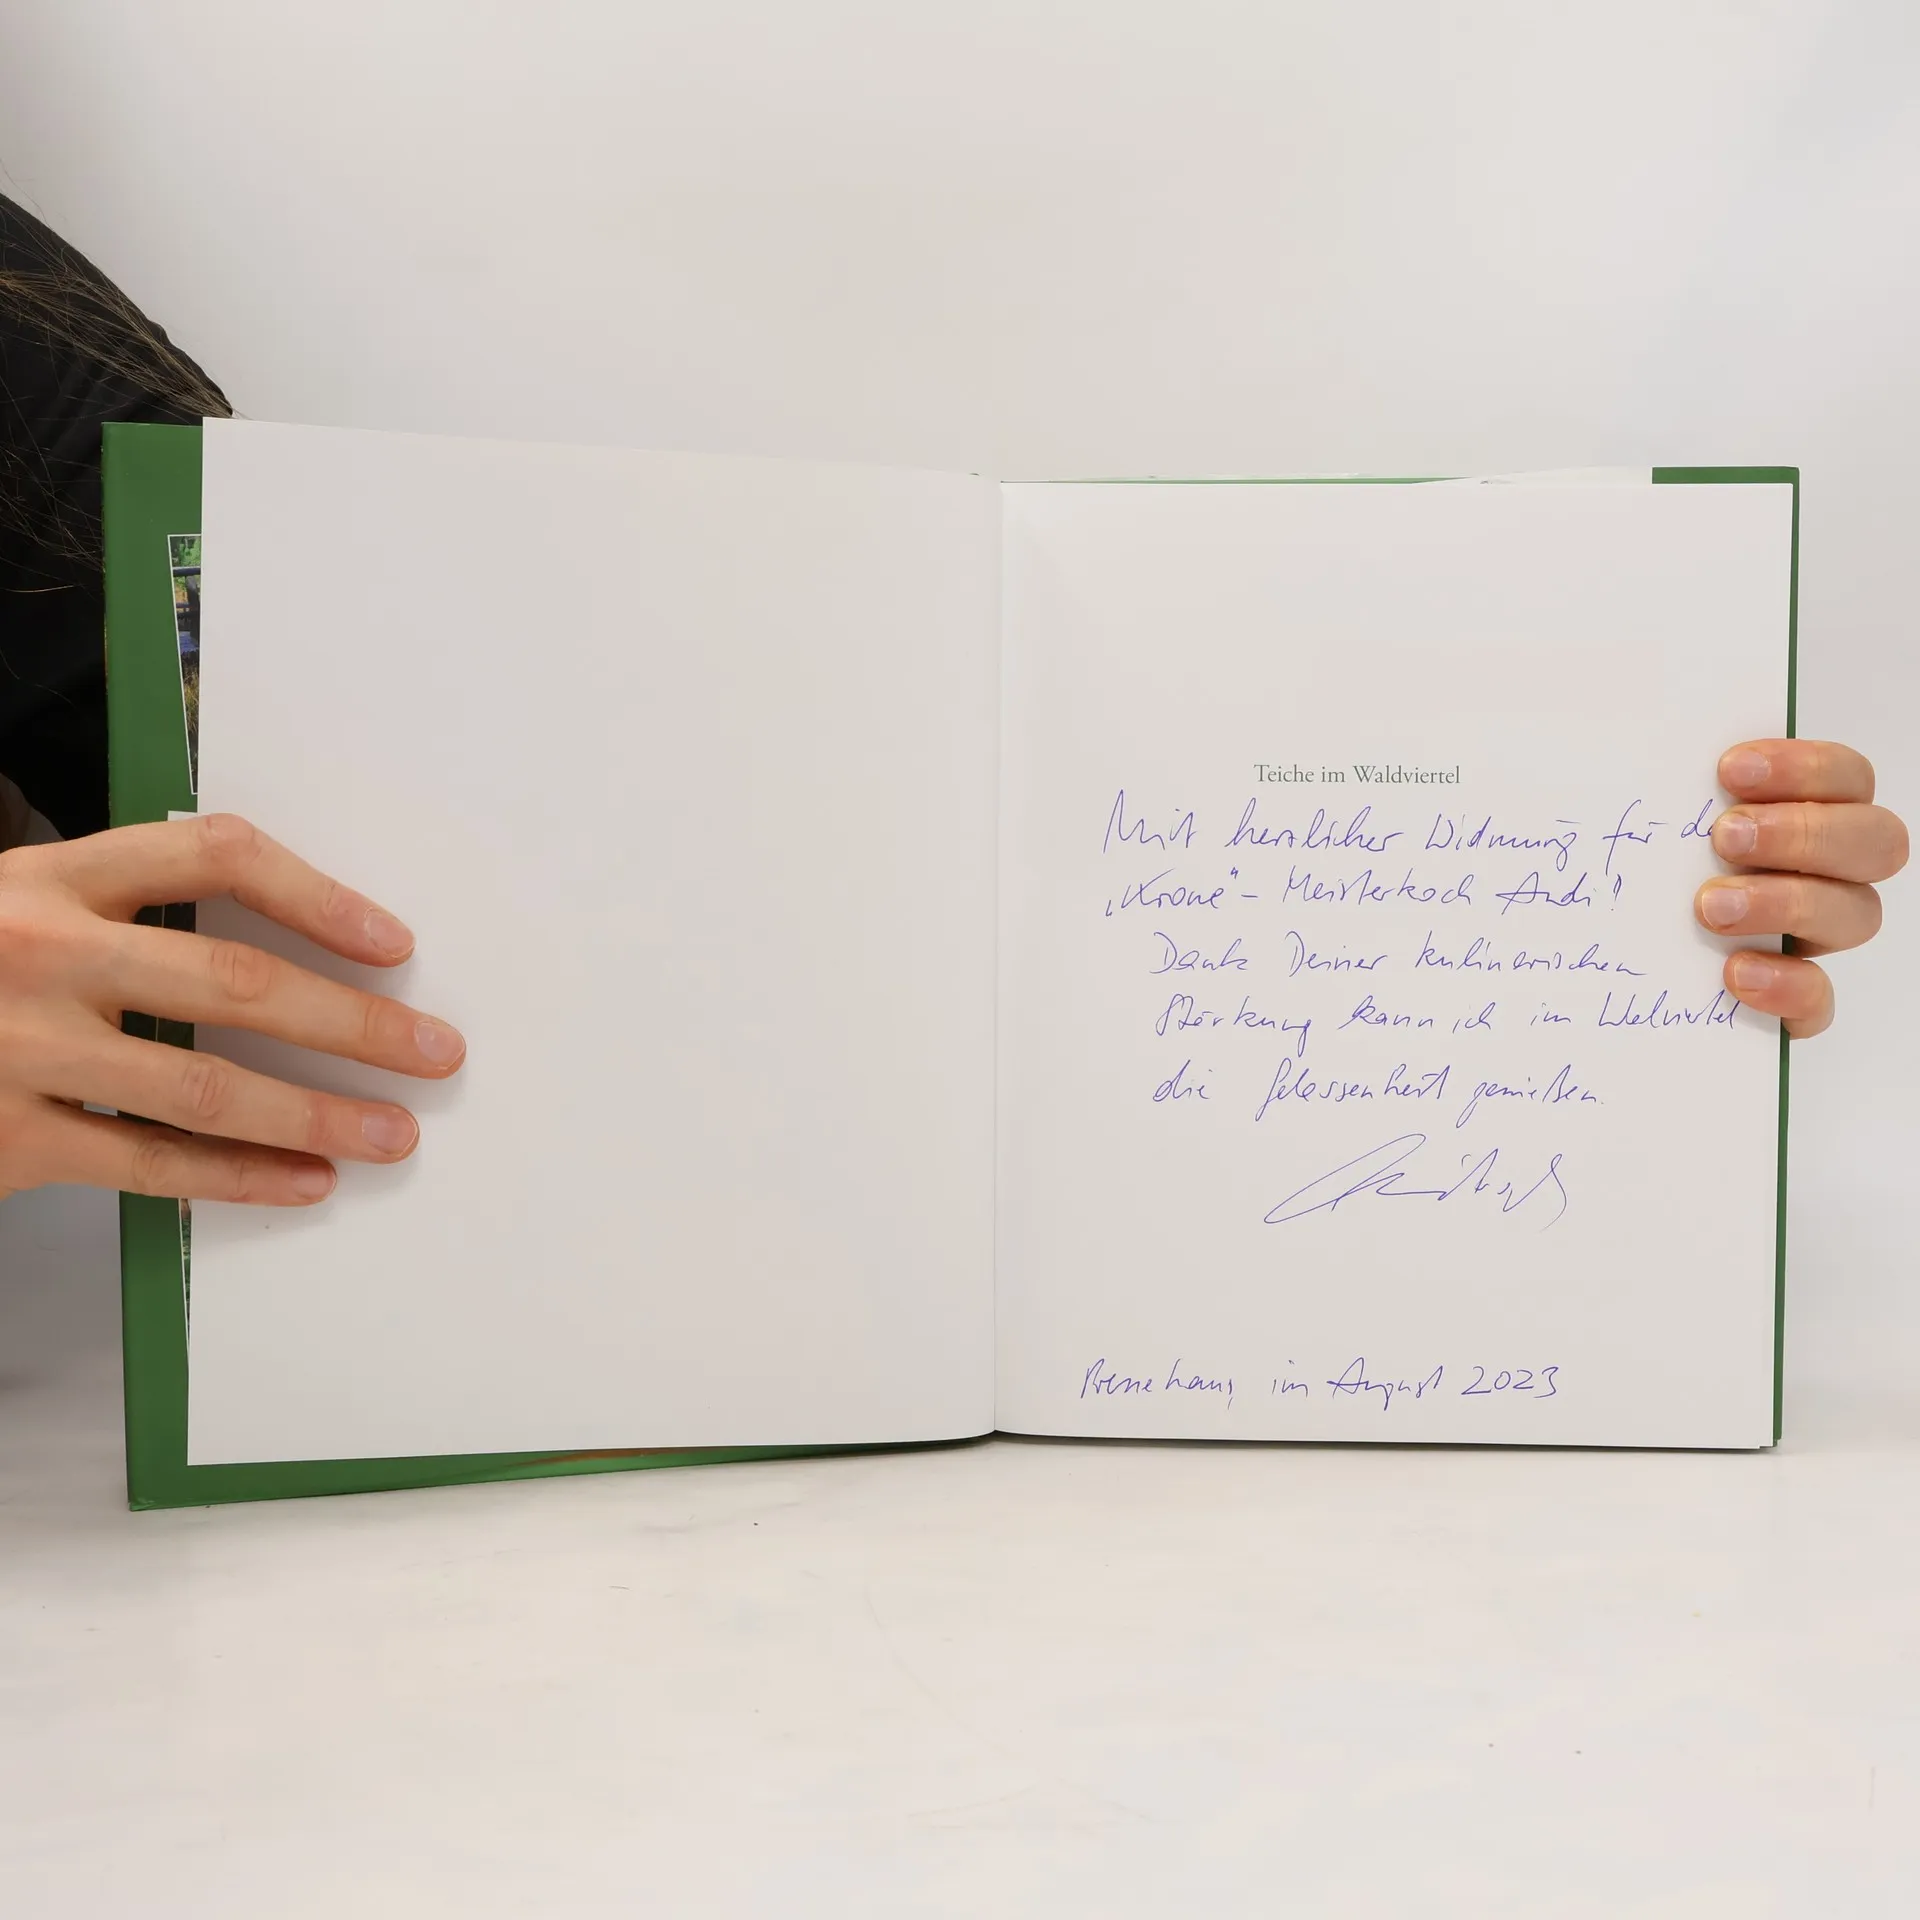 Teiche im Waldviertel
Mit herzlicher Widmung für
„Krone"- Meisterkoch Andi!
Dank Deiner kulinarischen
Stärkung kann ich im
die Gelassenheit genießen.
im August 2023